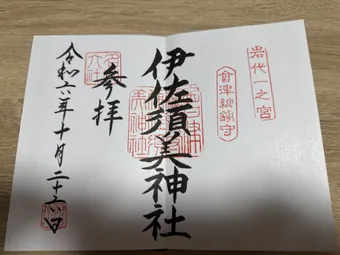 岩代一之宮
會津総鎮守
伊佐須美神社
参拝
令和六年十月二十六日